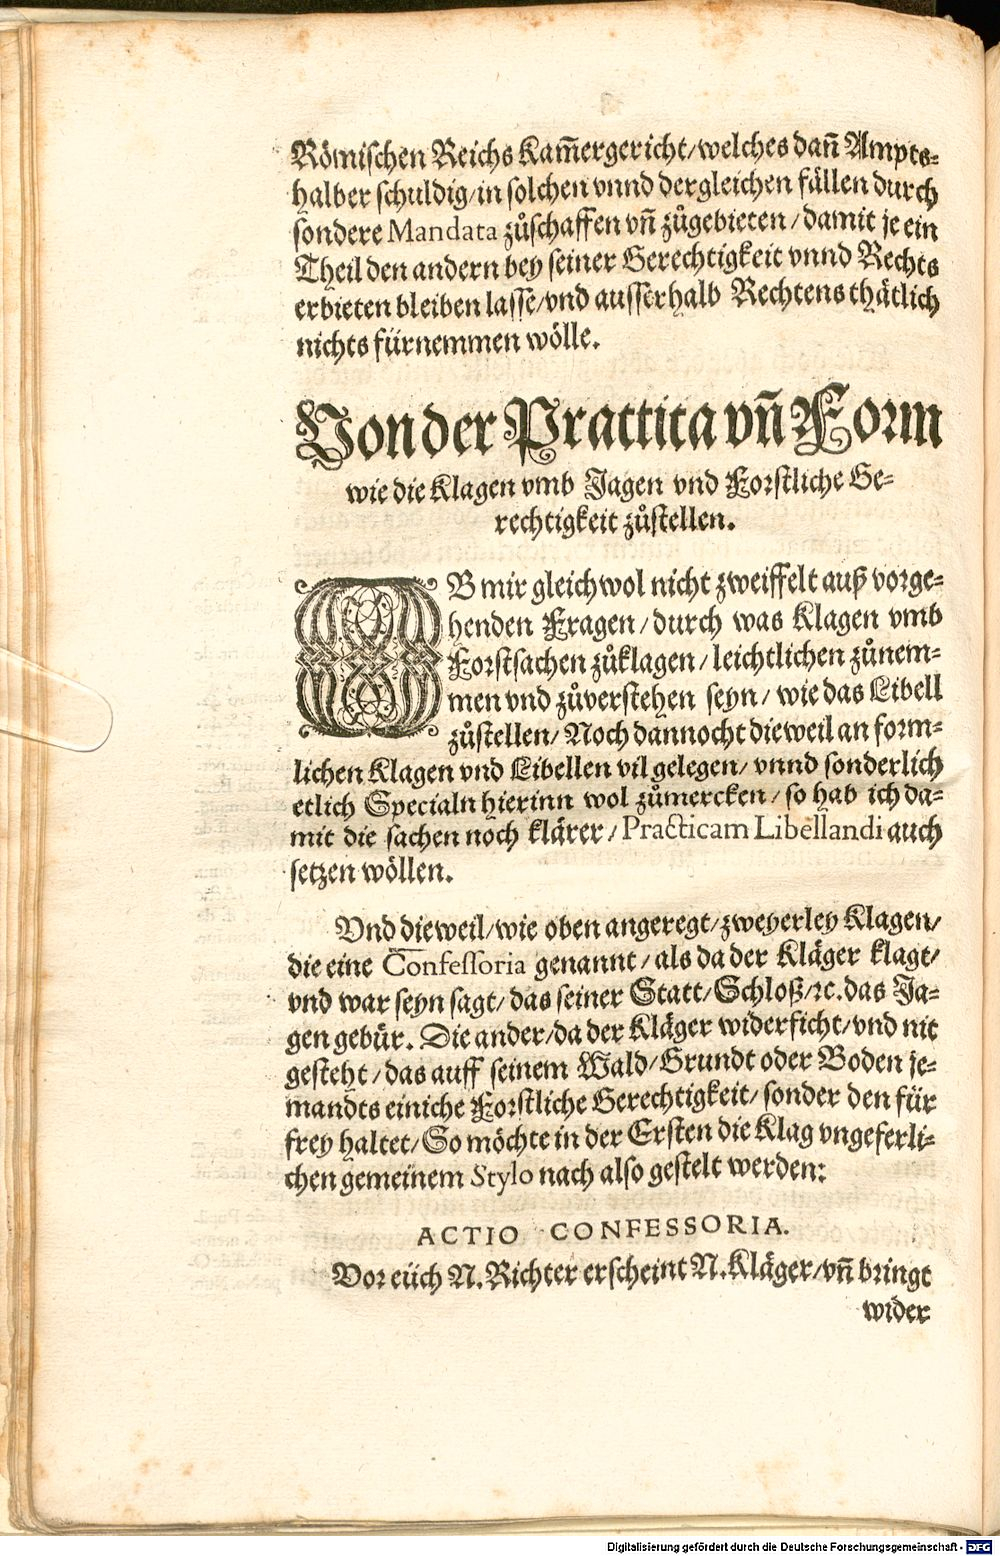 Römischen Reichs Kam̃ergericht/welches dañ Ampts-
halber schuldig/in solchen vnnd dergleichen fällen durch
sondere Mandata zůschaffen vñ zůgebieten/damit je ein
Theil den andern bey seiner Gerechtigkeit vnnd Rechts
erbieten bleiben lasse/vnd ausserhalb Rechtens thätlich
nichts fürnemmen wölle.
Von der Prattica vñ Form
wie die Klagen vmb Jagen vnd Forstliche Ge-
rechtigkeit zůstellen.
OB mir gleichwol nicht zweiffelt auß vorge-
henden Fragen/durch was Klagen vmb
Forstsachen zůklagen/leichtlichen zůnem-
men vnd zůverstehen seyn/wie das Libell
zůstellen/Noch dannocht dieweil an form-
lichen Klagen vnd Libellen vil gelegen/vnnd sonderlich
etlich Specialn hierinn wol zůmercken/so hab ich da-
mit die sachen noch klärer/Practicam Libellandi auch
setzen wöllen.
Vnd dieweil/wie oben angeregt/zweyerley Klagen/
die eine Confessoria genannt/als da der Kläger klagt/
vnd war seyn sagt/das seiner Statt/Schloß/ꝛc.das Ja-
gen gebür. Die ander/da der Kläger widerficht/vnd nit
gesteht/das auff seinem Wald/Grundt oder Boden je-
mandts einiche Forstliche Gerechtigkeit/sonder den für
frey haltet/So möchte in der Ersten die Klag vngeferli-
chen gemeinem Stylo nach also gestelt werden:
ACTIO CONFESSORIA.
Vor eüch N. Richter erscheint N. Kläger/vñ bringt
wider
Digitalisierung gefördert durch die Deutsche Forschungsgemeinschaft - DFG